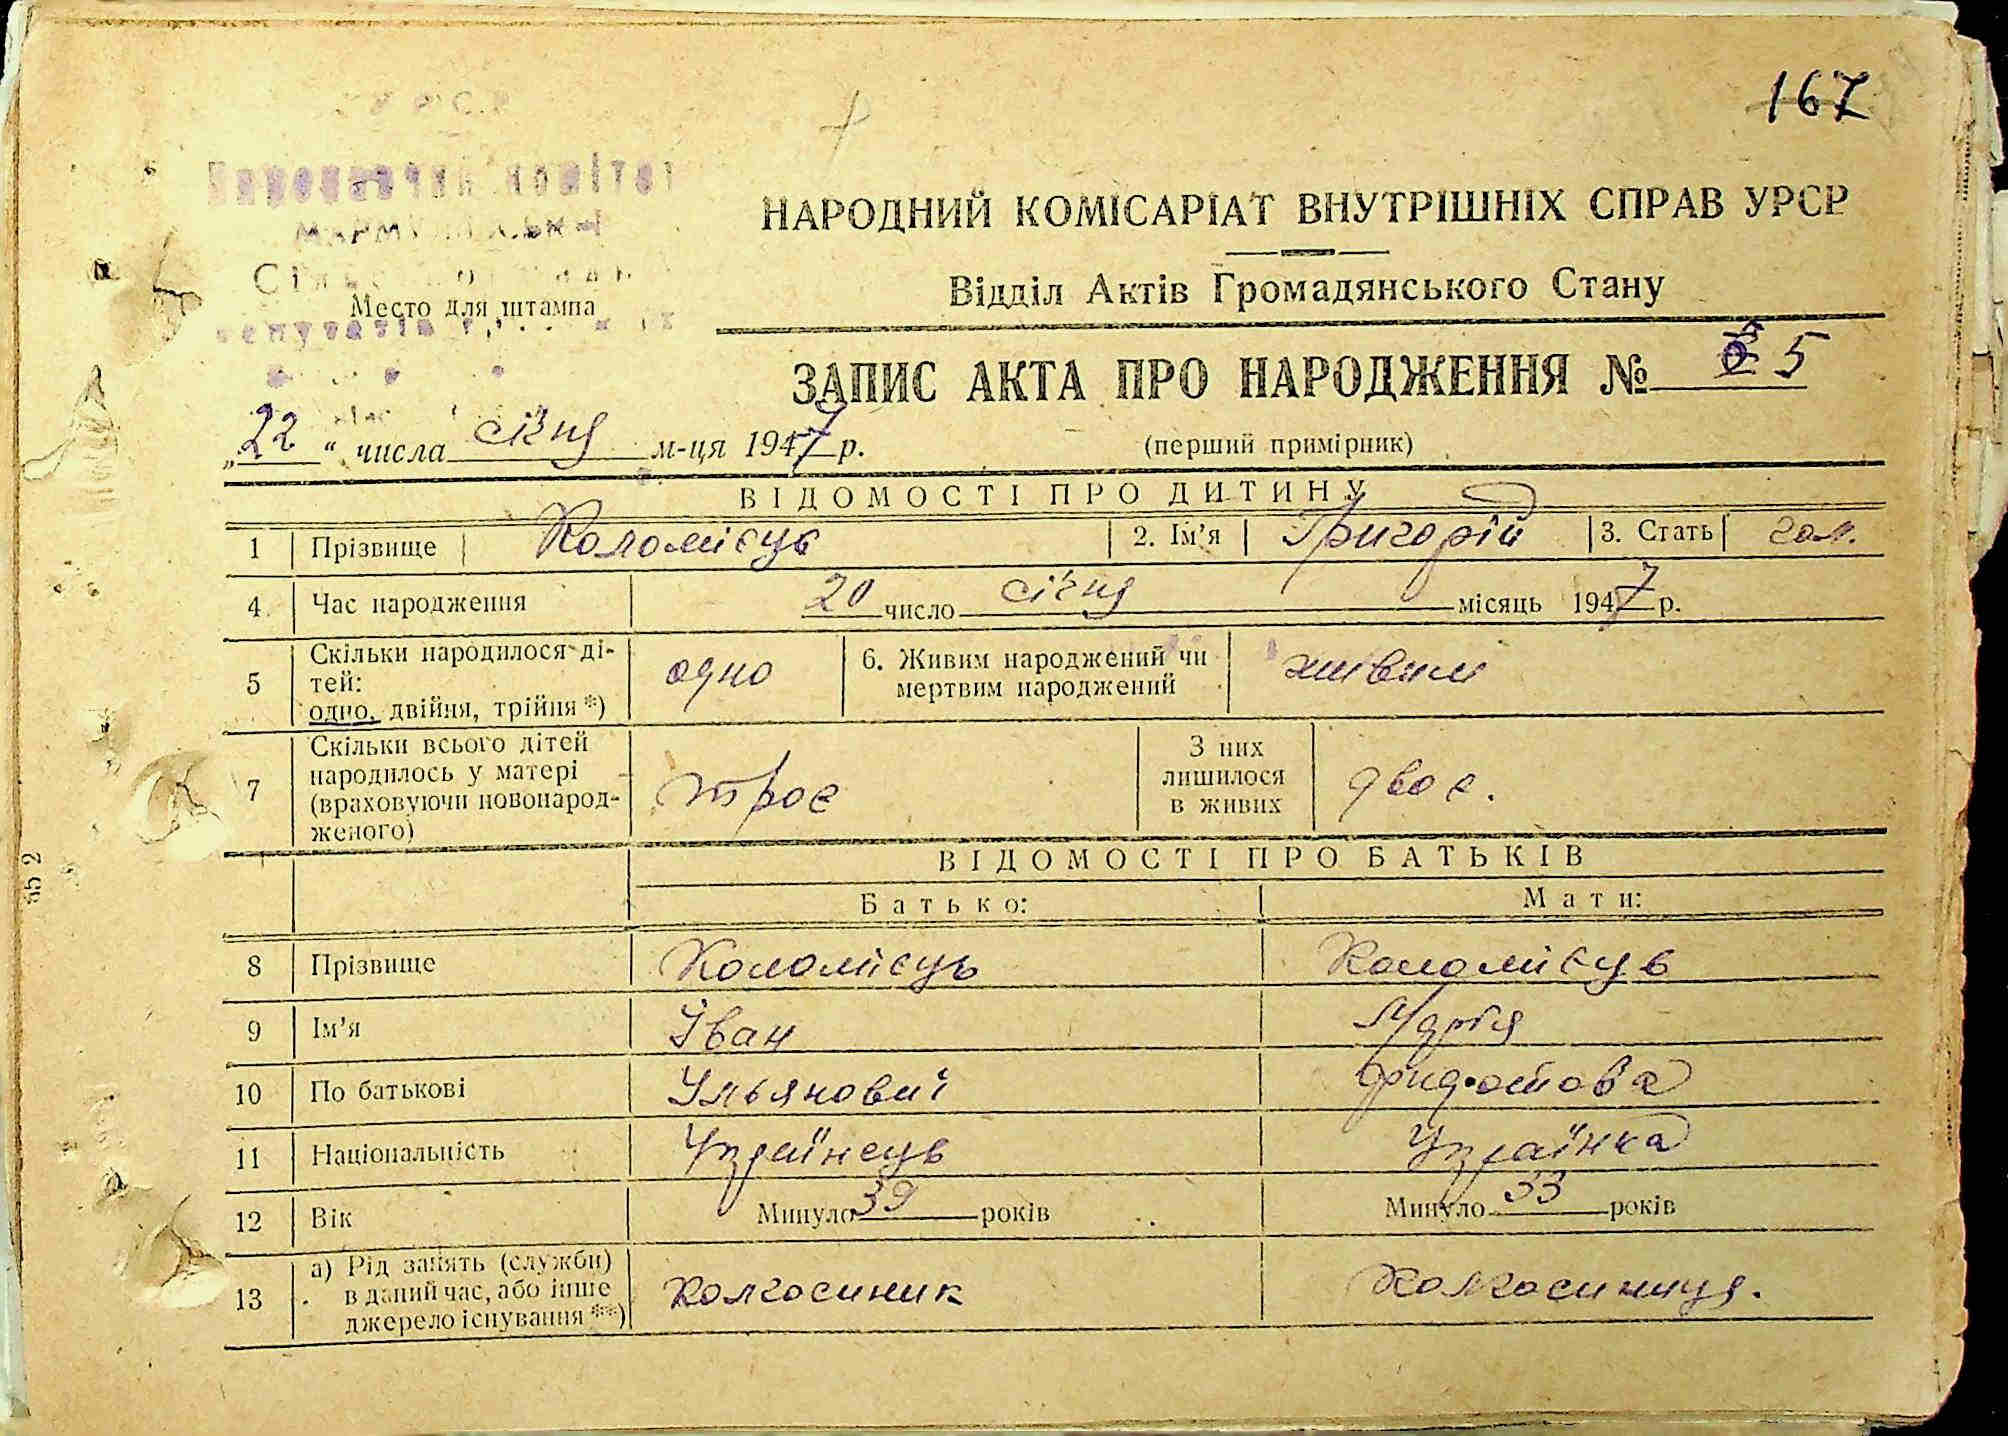 167
НАРОДНИЙ КОМІСАРІАТ ВНУТРІШНІХ СПРАВ УРСР
Відділ Актів Громадянського Стану
Место для штампа
ЗАПИС АКТА ПРО НАРОДЖЕННЯ № 5
„22“ числа січня м-ця 1947 р. (перший примірник)
ВІДОМОСТІ ПРО ДИТИНУ
1 Прізвище Коломієць 2. Ім'я Григорій 3. Стать чол.
4 Час народження 20 число січня місяць 1947 р.
5 Скільки народилося ді-
тей:
одно, двійня, трійня *) одно 6. Живим народжений чи
мертвим народжений живим
7 Скільки всього дітей
народилось у матері
(враховуючи новонарод-
женого) троє З них
лишилося
в живих двоє.
ВІДОМОСТІ ПРО БАТЬКІВ
Батько: Мати:
8 Прізвище Коломієць Коломієць
9 Ім'я Іван Марія
10 По батькові Ульянович
11 Національність Українець Українка
12 Вік Минуло 39 років Минуло 33 років
13 а) Рід занять (служби)
в даний час, або інше
джерело існування **) Колгоспник Колгоспниця.
552